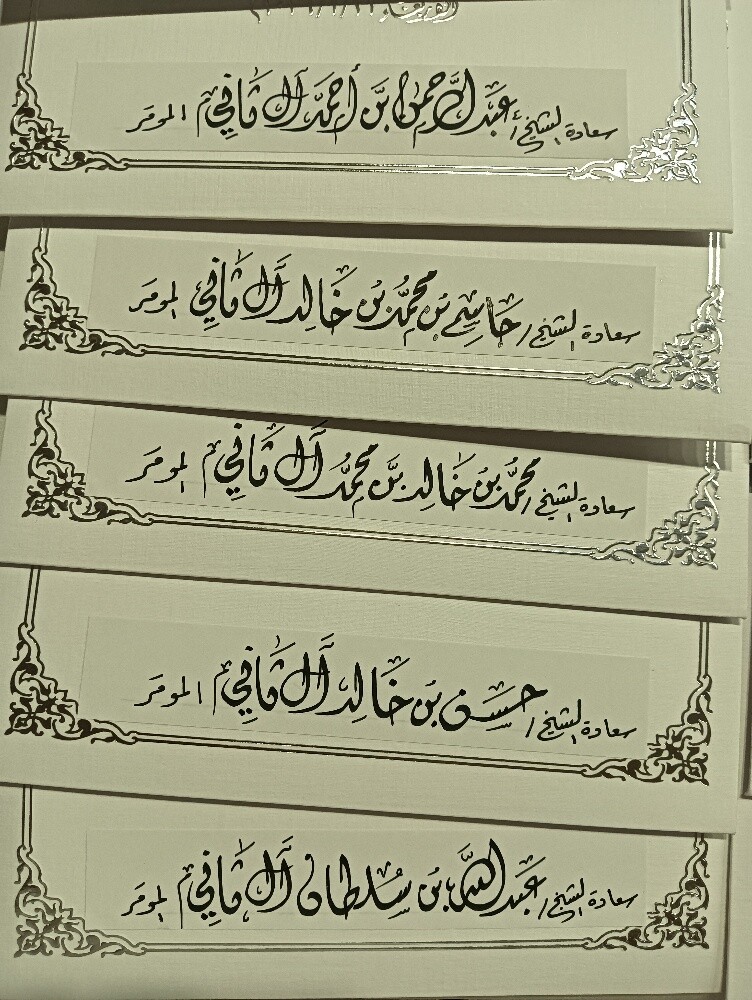 سعادة الشيخ/ عبدالرحمن بن أحمد آل ثاني الموقر
سعادة الشيخ/ جاسم بن محمد بن خالد آل ثاني الموقر
سعادة الشيخ/ محمد بن خالد بن محمد آل ثاني الموقر
سعادة الشيخ/ حسن بن خالد آل ثاني الموقر
سعادة الشيخ/ عبدالله بن سلطان آل ثاني الموقر